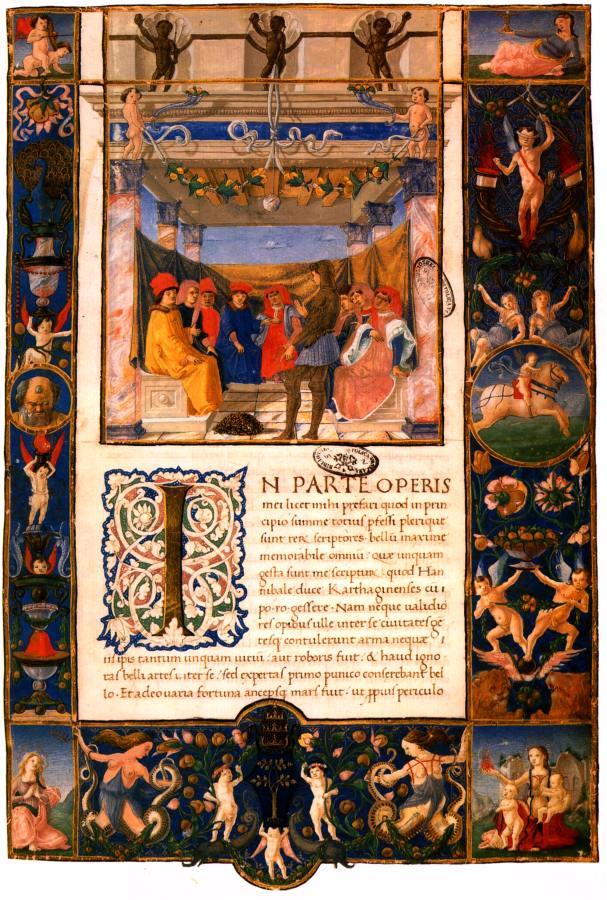 IN PARTE OPERIS
mei licet mihi prefari quod in prin
cipio summe totius pfessi plerique
sunt reru scriptores: bellu maxime
memorabile omniu: que unquam
gesta sunt me scripturu: quod Han
nibale duce Karthaginenses cu
po. ro. gessere. Nam neque ualidio
res opibus ulle inter se ciuitates ge
tesq contulerunt arma neque
ipsis tantum unquam uiriu: aut roboris fuit: & haud igno
tas belli artes iter se: sed expertas primo punico conserebant bel
lo. Et adeo uaria fortuna ancepsq mars fuit: ut ppius periculo